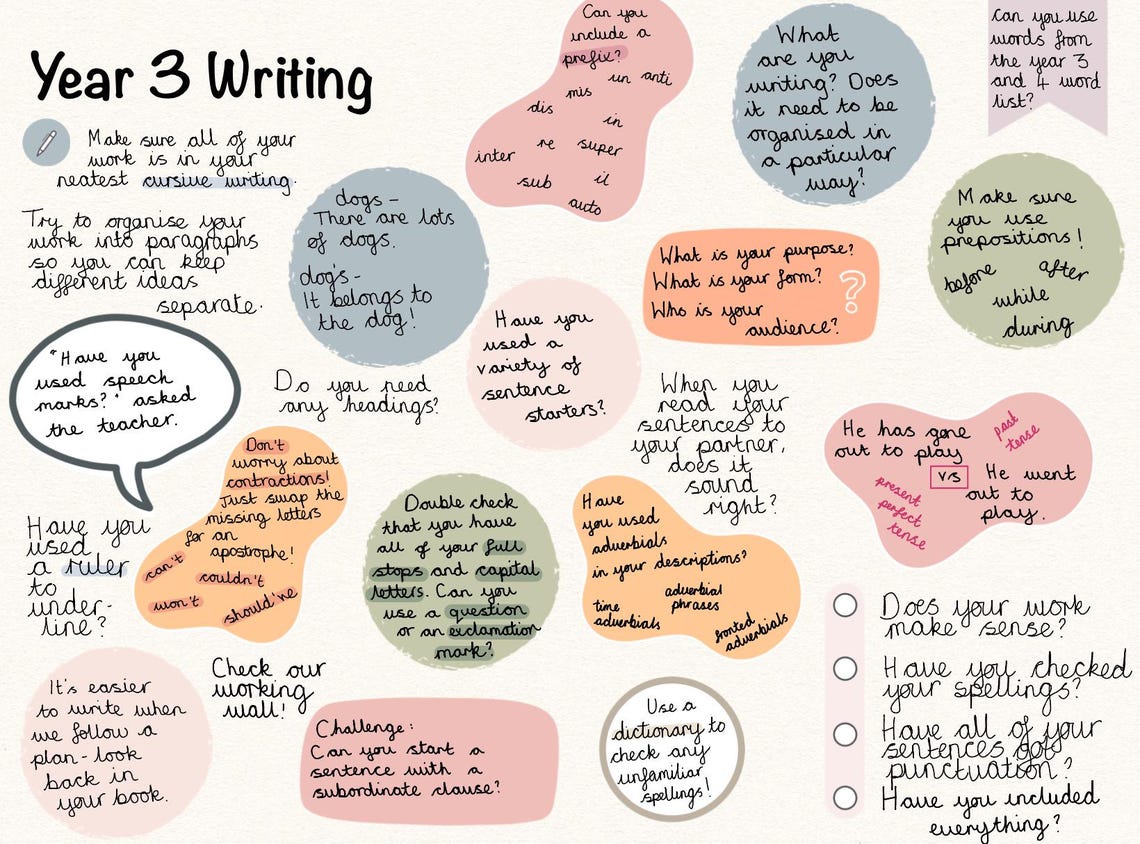 Year 3 Writing
Make sure all of your
work is in your
neatest cursive writing.
Try to organise your
work into paragraphs
so you can keep
different ideas
separate.
"Have you
used speech
marks?" asked
the teacher.
dogs -
There are lots
of dogs.
dog's -
It belongs to
the dog!
Can you
include a
prefix?
un anti
mis
dis
in
re super
inter
sub il
auto
What
are you
writing? Does
it need to be
organised in
a particular
way?
Can you use
words from
the year 3
and 4 word
list?
Make sure
you use
prepositions!
before after
while
during
What is your purpose?
What is your form?
Who is your
audience?
?
Have you
used a
variety of
sentence
starters?
Do you need
any headings?
When you
read your
sentences to
your partner,
does it
sound
right?
He has gone
out to play
past
tense
vs
He went
out to
play.
present
perfect
tense
Don't
worry about
contractions!
Just swap the
missing letters
for an
apostrophe!
can't
couldn't
won't
should've
Have you
used
a ruler
to
under-
line?
Double check
that you have
all of your full
stops and capital
letters. Can you
use a question
or an exclamation
mark?
Have
you used
adverbials
in your descriptions?
adverbial
phrases
time
adverbials
fronted
adverbials
It's easier
to write when
we follow a
plan - look
back in
your book.
Check our
working
wall!
Challenge:
Can you start a
sentence with a
subordinate clause?
Use a
dictionary to
check any
unfamiliar
spellings!
Does your work
make sense?
Have you checked
your spellings?
Have all of your
sentences got
punctuation?
Have you included
everything?